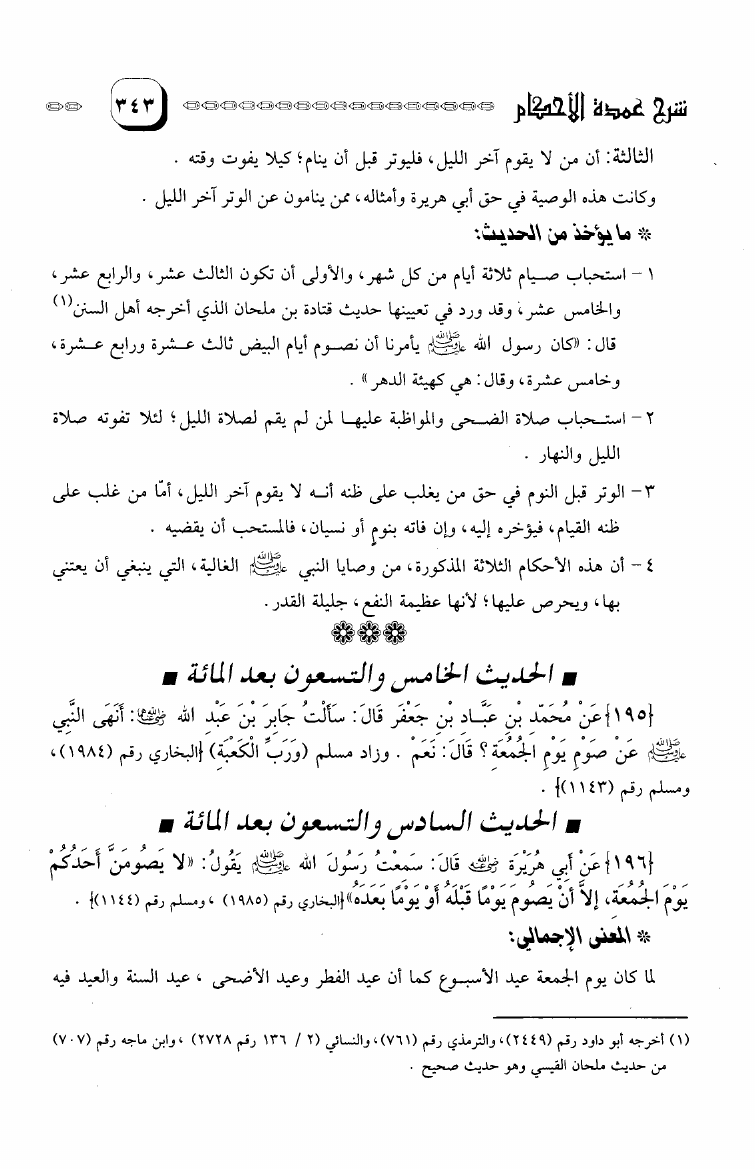 شرح عمدة الأحكام ٣٤٣
الثالثة: أن من لا يقوم آخر الليل، فليوتر قبل أن ينام؛ كيلا يفوت وقته .
وكانت هذه الوصية في حق أبي هريرة وأمثاله، ممن ينامون عن الوتر آخر الليل .
* ما يؤخذ من الحديث:
١ - استحباب صيام ثلاثة أيام من كل شهر، والأولى أن تكون الثالث عشر، والرابع عشر،
والخامس عشر، وقد ورد في تعيينها حديث قتادة بن ملحان الذي أخرجه أهل السنن(١)
قال: «كان رسول الله ﷺ يأمرنا أن نصوم أيام البيض ثالث عشرة ورابع عشرة،
وخامس عشرة، وقال: هي كهيئة الدهر» .
٢ - استحباب صلاة الضحى والمواظبة عليها لمن لم يقم لصلاة الليل؛ لئلا تفوته صلاة
الليل والنهار .
٣ - الوتر قبل النوم في حق من يغلب على ظنه أنه لا يقوم آخر الليل، أمّا من غلب على
ظنه القيام، فيؤخره إليه، وإن فاته بنومٍ أو نسيان، فالمستحب أن يقضيه .
٤ - أن هذه الأحكام الثلاثة المذكورة، من وصايا النبي ﷺ الغالية، التي ينبغي أن يعتني
بها، ويحرص عليها؛ لأنها عظيمة النفع، جليلة القدر.
■ الحديث الخامس والتسعون بعد المائة ■
{١٩٥}عَنْ مُحَمَّدِ بْنِ عَبَّادِ بْنِ جَعْفَرٍ قَالَ: سَأَلْتُ جَابِرَ بْنَ عَبْدِ الله رضي الله عنهما: أَنَهَى النَّبِي
ﷺ عَنْ صَوْمِ يَوْمِ الجُمُعَةِ؟ قَالَ: نَعَمْ . وزاد مسلم (وَرَبِّ الْكَعْبَةِ) {البخاري رقم (١٩٨٤)،
ومسلم رقم (١١٤٣)} .
■ الحديث السادس والتسعون بعد المائة ■
{١٩٦}عَنْ أَبِي هُرَيْرَةَ رضي الله عنه قَالَ: سَمِعْتُ رَسُولَ الله ﷺ يَقُولُ: «لا يَصُومَنَّ أَحَدُكُمْ
يَوْمَ الجُمُعَةِ، إِلاَّ أَنْ يَصُومَ يَوْمًا قَبْلَهُ أَوْ يَوْمًا بَعَدَهُ»{البخاري رقم (١٩٨٥) ، ومسلم رقم (١١٤٤)} .
* المعنى الإجمالي:
لما كان يوم الجمعة عيد الأسبوع كما أن عيد الفطر وعيد الأضحى ، عيد السنة والعيد فيه
(١) أخرجه أبو داود رقم (٢٤٤٩)، والترمذي رقم (٧٦١)، والنسائي (٢ / ١٣٦ رقم ٢٧٢٨) ، وابن ماجه رقم (٧٠٧)
من حديث ملحان القيسي وهو حديث صحيح .